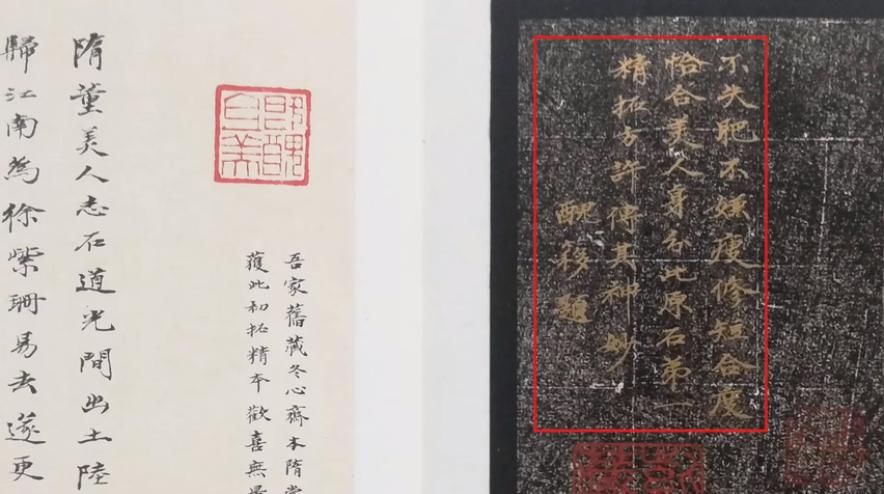 不失肥不嫌瘦修短合度
恰合美人身分此原石第一
精拓方許傳其神妙
醜簃題
既醜且美
吾家舊藏冬心齋本隋
獲此初拓精本歡喜無
隋董美人志石道光間出土陸
歸江南為徐紫珊易去遂更